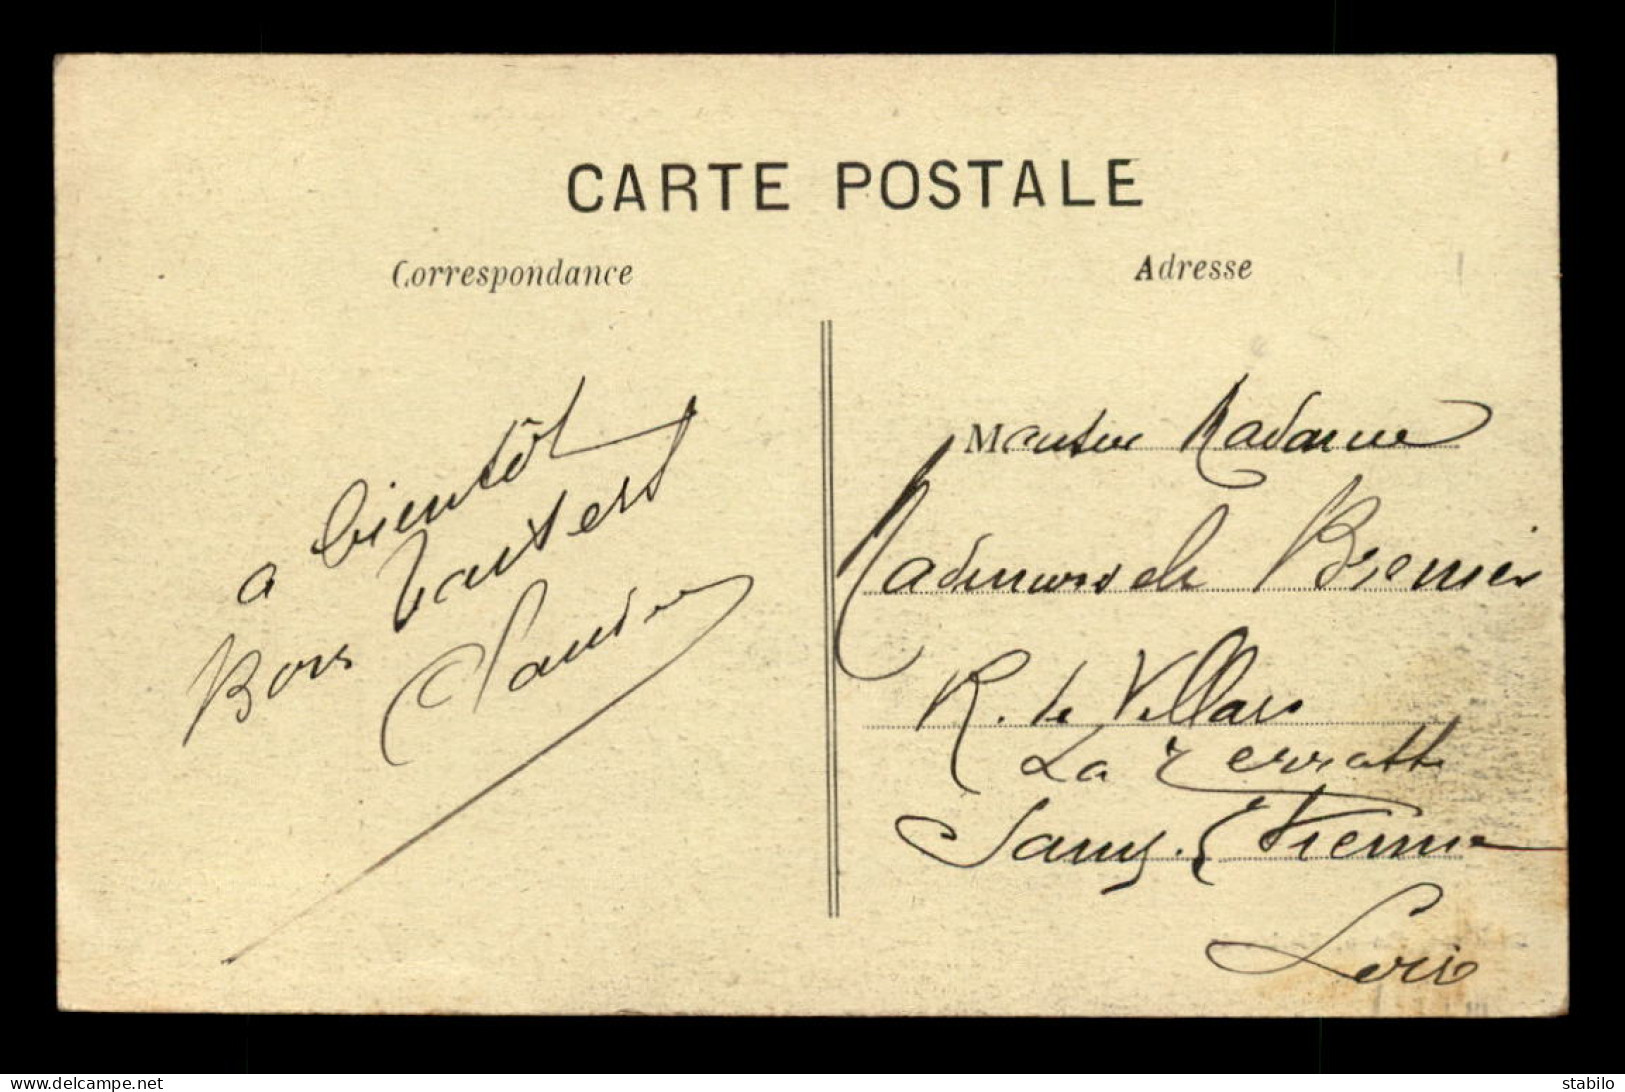 CARTE POSTALE
Correspondance
Adresse
a bientôt
Bons baisers
Claudia
Monsieur Madame
Mademoiselle Bremier
R. de Villars
La Terrasse
St Etienne
Loire
delcampe.net
stabilo